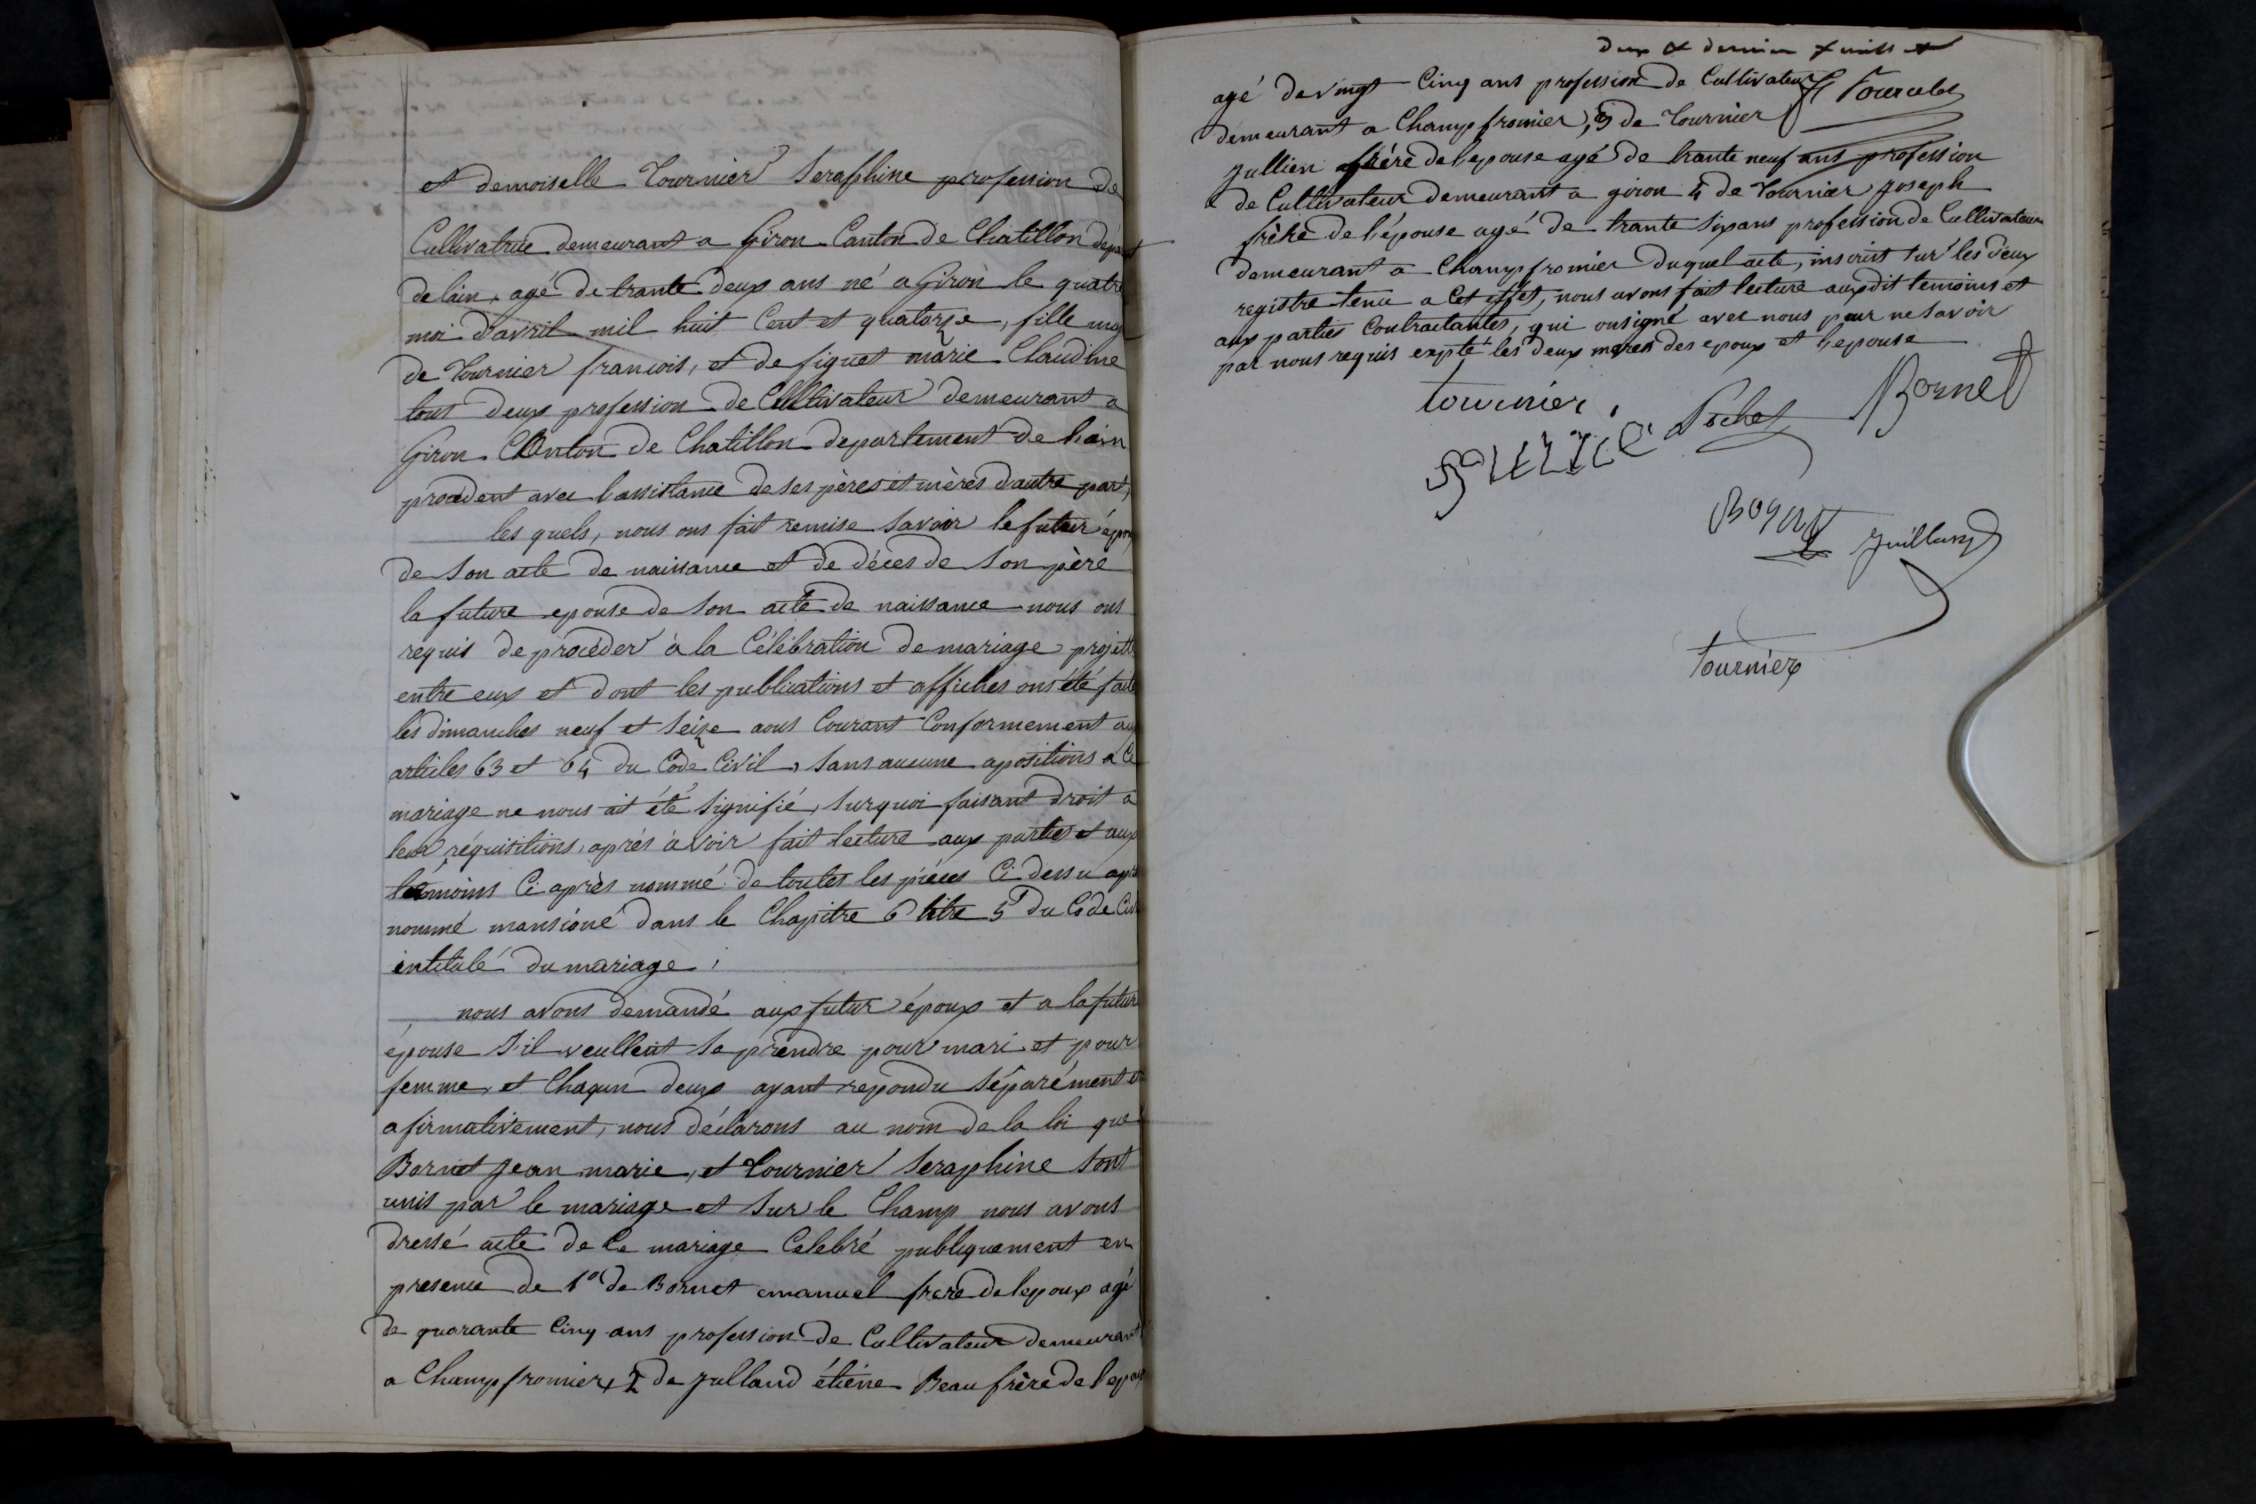 et demoiselle Tournier Seraphine profession de
Cultivatrice demeurant a Giron Canton de Chatillon depart
de lain, agé de trante deux ans né a Giron le quatre
moi d'avril mil huit Cent et quatorze, fille maj
de Tournier francois, et de figuet marie Claudine
tous deux profession de Cultivateur demeurant a
Giron Canton de Chatillon departement de lain
procedent avec lassistance de ses pères et mères dautre part,
les quels, nous ons fait remise savoir le futur épou
de son acte de naissance et de déces de son père
la future epouse de son acte de naissance nous ons
requis de procéder à la Célébration de mariage projetté
entre eux et dont les publications et affiches ons été faite
les dimanches neuf et seize aous Courant Conformement aux
articles 63 et 64 du Code Civil, sans aucune apositions a Ce
mariage ne nous ait été signifié, surquoi faisant droit a
leur réquisitions, après avoir fait lecture aux parties et aux
témoins Ci après nommé de toutes les pièces Ci dessu apré
nommé mansioné dans le Chapitre 6 titre 5 du Code Civi
intitulé du mariage;
nous avons demandé aux futur époux et a la futur
épouse s'il veullent se prendre pour mari et pour
femme, et Chaqun deux ayant repondu séparément et
afirmativement, nous déclarons au nom de la loi que
Bornet Jean marie, et Tournier Seraphine sont
unis par le mariage et sur le Champ nous avons
dressé acte de Ce mariage Celebré publiquement en
presence de 1° de Bornet emanuel frere de lepoux agé
de quarante Cinq ans profession de Cultivateur demeurant
a Champfromier, 2 de Julland étiéne Beau frère de lepoux
deux et dernier
agé de vingt Cinq ans profession de Cultivateur
demeurant a Champfromier, 3 de Tournier
Jullien frère de lepouse agé de trante neuf ans profession
de Cultivateur demeurant a giron 4 de Tournier Joseph
frère de l'épouse agé de trante six ans profession de Cultivateur
demeurant a Champfromier duquel acte, inscrit sur les deux
registre tenu a Cet effet, nous avons fait lecture aux dit temoins et
aux parties Contractantes, qui onsigné avec nous pour ne savoir
par nous requis expté les deux meres des epoux et lepouse
tournier. Bornet
Juilland
Tournier